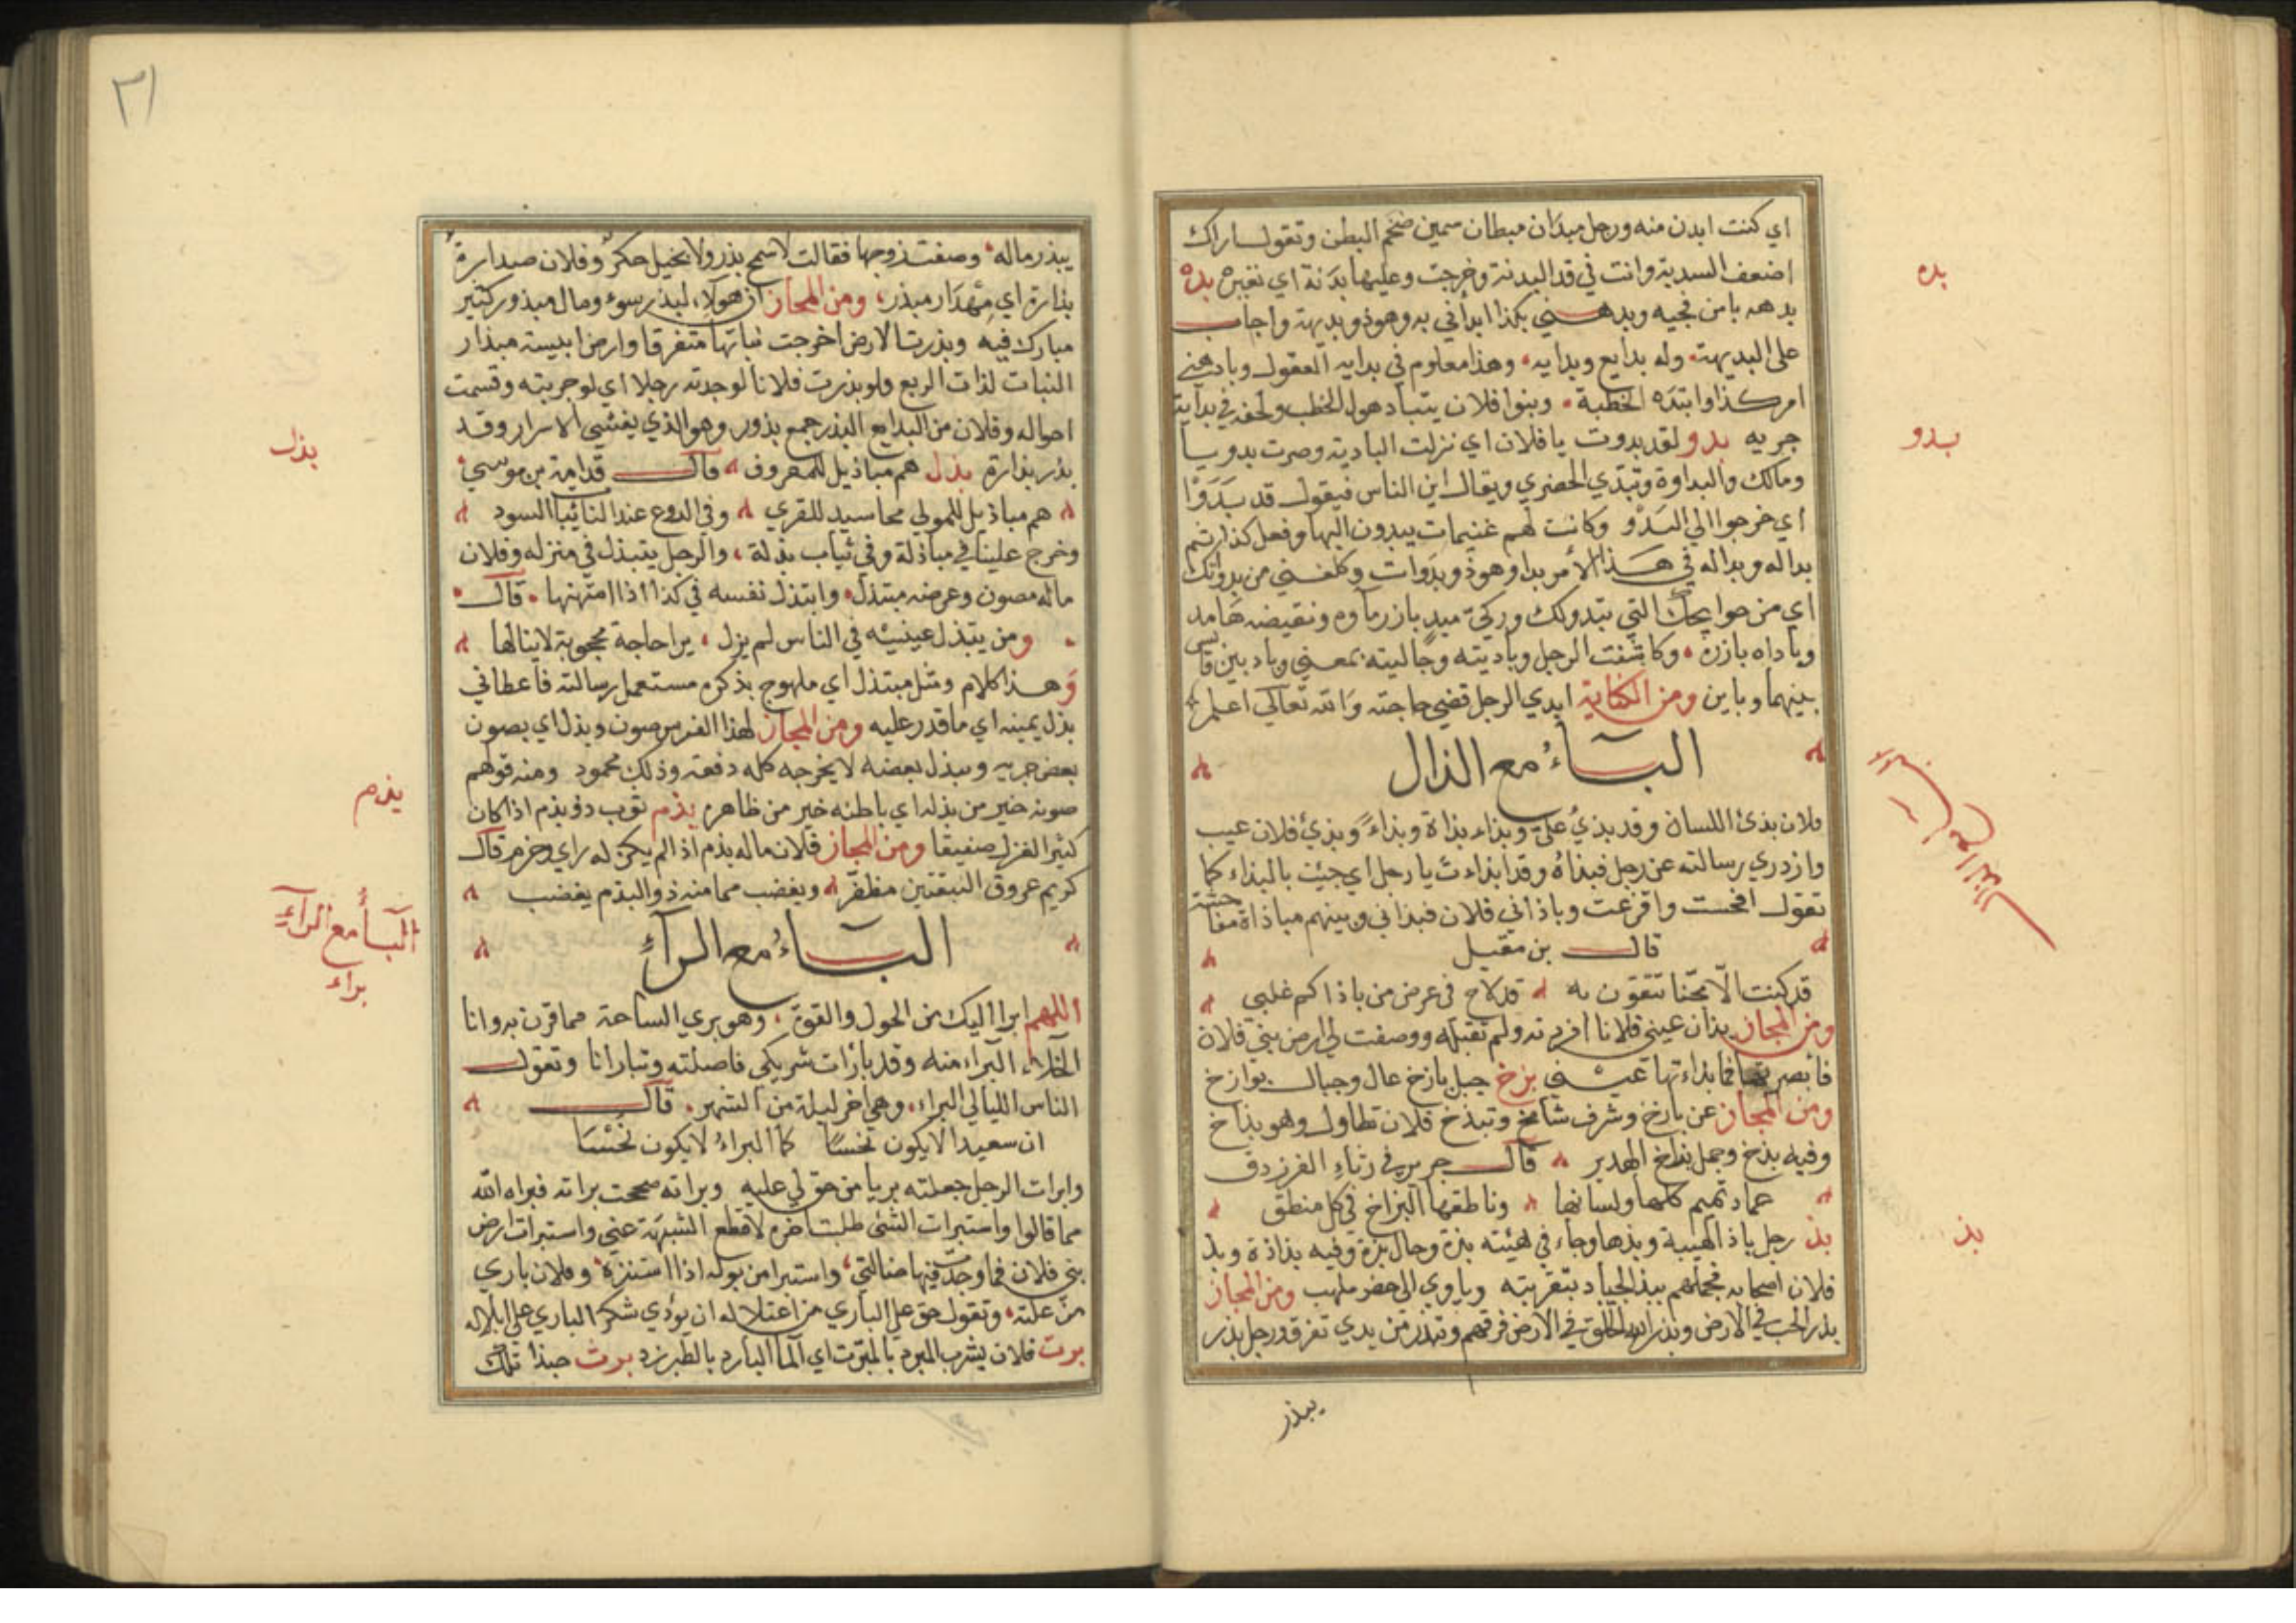 اي كنت ابدن منه ورجل مبدان مبطان سمين ضخم البطن وتقول اراك
اضعف السدية وانت في قد البدنة وخرجت وعليها بدنة اي بقيرة بده
بدهه بامن فجيه وبدهني بكذا ابدأني به وهو ذو بديهة واجاب
على البديهة وله بدايع وبدايه وهذا معلوم في بدايه العقول وبادهني
امر كذا وابتده الخطبة وبنوا فلان يتبادهون الخطب ولحقه في بداية
جريه بدو لقد بدوت يا فلان اي نزلت البادية وصرت بدويا
ومالك والبداوة وتبدي الحضري ويقال اين الناس فيقول قد بَدَوْا
اي خرجوا الي البَدْو وكانت لهم غنيمات يبدون اليها وفعل كذا ثم
بداله وبداله في هذا الأمر بدا وهو ذو بدوات وكلفني من بدواتك
اي من حوايجك التي تبدولك وركيّ مبدٍ بارز ماوه ونقيضه هامد
وباداه بارزه وكاشفت الرجل وباديته وجاليته بمعني وباد بين قاس
بينهما وباين ومن الكناية ابدي الرجل قضي حاجته والله تعالي اعلم
البآءُ مع الذال
فلان بذئ اللسان وقد بذيُ عليّ وبذاء بذاة وبذاءً وبذئ فلان عيب
وازدري رسالته عن رجل فبذاهُ وقد ابذاءت يا رجل اي جيت بالبذاء كما
تقول افحشت واقزعت وباذاني فلان فبذاني وبينهم مباذاة مفاحشة
قال بن مقبل
قد كنت الّا تحنّا تتقون به قد لاح في عرض من باذاكم غلبي
ومن المجاز بذات عيني فلانا ازدرته ولم تقبله ووصفت لي ارض بني فلان
فأبصرتها فما بذاءتها عيني بزخ جبل باذخ عال وجبال بواذخ
ومن المجاز عن باذخ وشرف شامخ وتبذخ فلان تطاول وهو بذاخ
وفيه بذخ وجمل بذاخ الهدير قال جرير في رثاءِ الفرزدق
عماد تميم كلها ولسانها وناطقها البزاخ في كل منطق
بذ رجل باذ الهيبة وبذها وجاء في هيئته بزة وحال بزة وفيه بذاذة وبذ
فلان اصحابه فجعلهم يبذ الجياد بتقريبته وياوي الي حضر ملهب ومن المجاز
بذر الحب في الارض وبذر الله الخلق في الارض فرقهم وتبذر من يدي تفرق ورجل بذر
يبذر
بده
بدو
البآء مع الذال
بذ
٣١
يبذر ماله وصفت زوجها فقالت لا سمح بذر ولا بخيل حكر وفلان صيدارةُ
بذارة اي مِهْدَار مبذر ومن المجاز ان هولاء لبذر سوء ومال مبذور كثير
مبارك فيه وبذرت الارض اخرجت نباتها متفرقا وارض ابيسته مبذار
النبات لذات الريع ولو بذرت فلانا لوجدته رجلا اي لو جربته وقسمت
احواله وفلان من البذايع البذر جمع بذور وهو الذي يفشي الاسرار وقد
بذر بذارة بذل هم مباذيل للمعروف قال قدامة بن موسي
هم مباذيل للمولي محاسيد للقري وفي الدوع عند النائبا السود
وخرج علينا في مباذلة وفي ثياب بذلة والرجل يتبذل في منزله وفلان
ماله مصون وعرضه مبتذل وابتذل نفسه في كذا اذا امتهنها قال
ومن يتبذل عينيه في الناس لم يزل يرا حاجة محجوبة لاينالها
وهذا كلام ومثل مبتذل اي ملهوج بذكره مستعمل رسالته فاعطاني
بذل يمينه اي ما قدر عليه ومن المجاز لهذا الفرس صون وبذل اي يصون
بعض جريه ويبذل بعضه لا يخرجه كله دفعة وذلك محمود ومنه قولهم
صونه خير من بذله اي باطنه خير من ظاهره بذم ثوب ذو بذم اذا كان
كثير الغزل صفيقا ومن المجاز فلان ماله بذم اذا لم يكن له راي وحزم قال
كريم عروق النبقتين مظفّر ويغضب مما منه ذو البذم يغضب
البآءُ مع الرآءِ
اللهم ابرا اليك من الحول والقوة وهو بري الساحة مما قرن به وانا
الخلاء البراء منه وقد بارات شريكي فاصلته وتبارانا وتقول
الناس الليالي البراء وهي اخر ليلة من الشهر قال
ان سعيدا لا يكون نحسًا كما البراءُ لا يكون نحْسَا
وابرات الرجل جعلته بريا من حق لي عليه وبراته صححت براته فبراه الله
مما قالوا واستبرات الشئ طلبت اخره لاقطع الشبهة عني واستبرات ارض
بني فلان فما وجدّت فيها ضالتي واستبرا من بوله اذا استنزه وفلان باري
من علته وتقول حق علي الباري من اعتلاله ان يؤدي شكر الباري علي ابلاله
برت فلان يشرب المبرد بالمبّرت اي الما البارد بالطبرزد برث حبذا تلك
بذل
بذم
البآءُ مع الرآءِ
براء